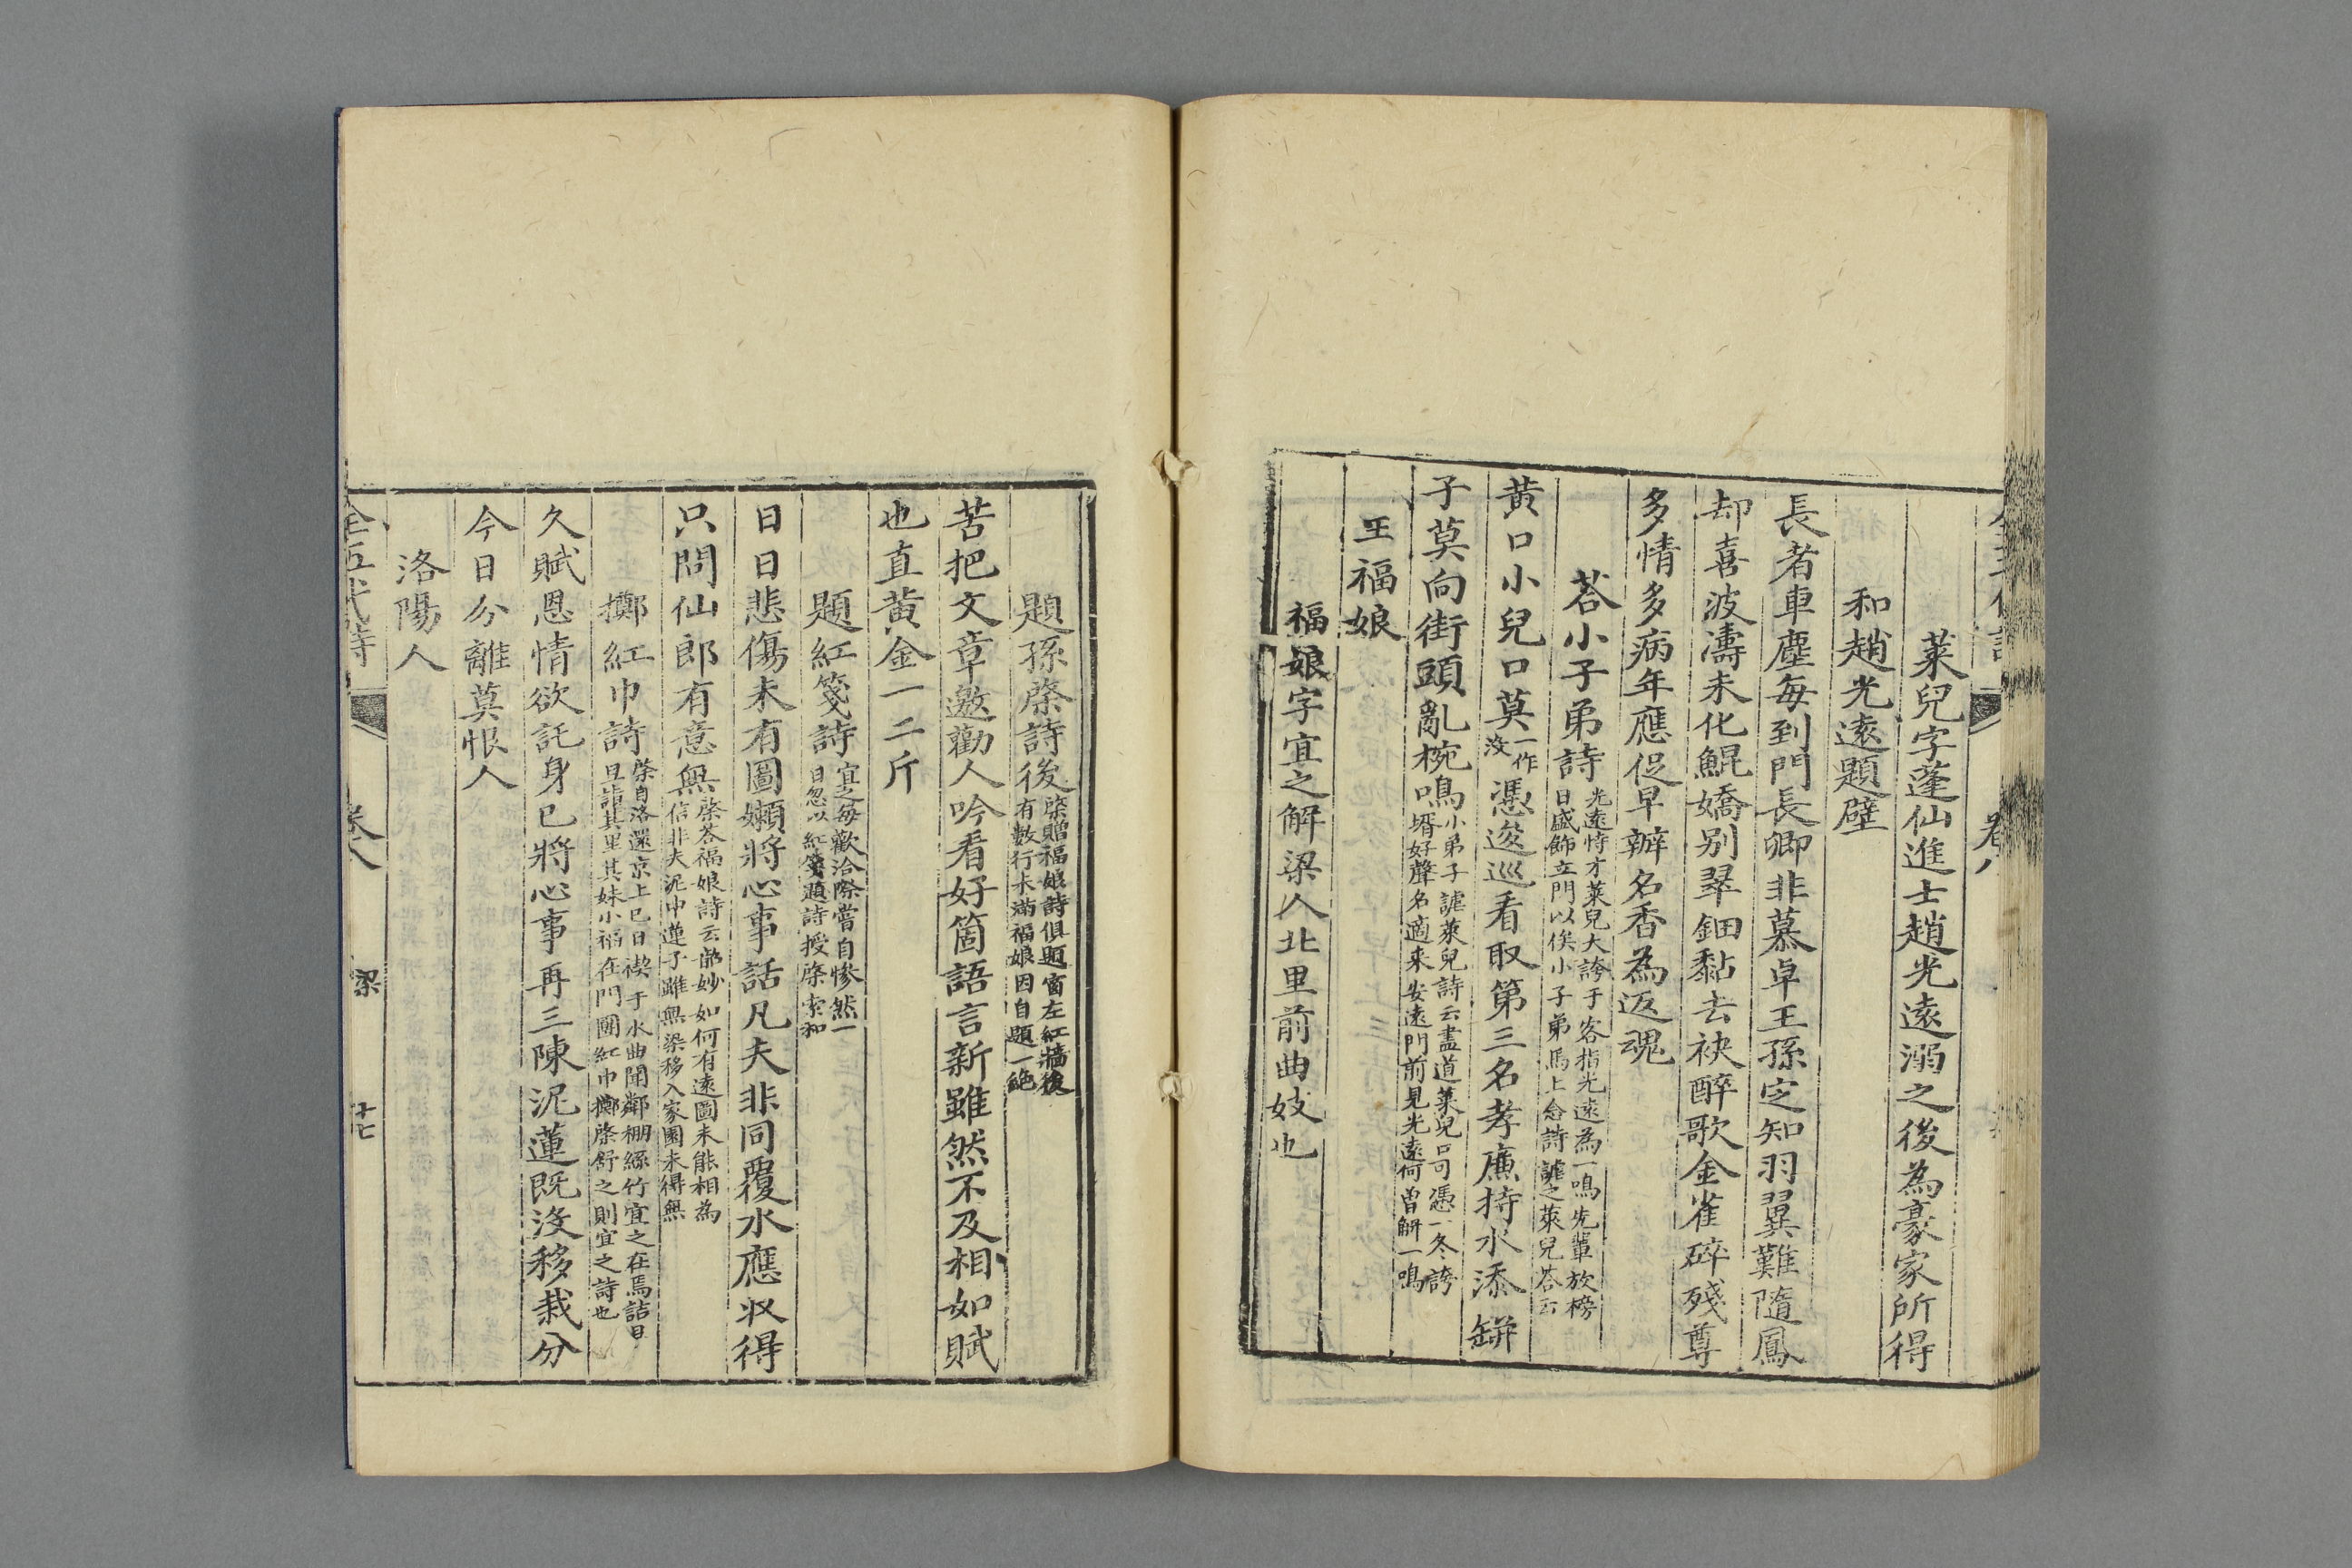 卷八
萊兒字蓬仙進士趙光遠溺之後為豪家所得
和趙光遠題壁
長者車塵每到門長卿非慕卓王孫定知羽翼難隨鳳
却喜波濤未化鯤嬌別翠鈿黏去袂醉歌金雀碎殘尊
多情多病年應促早辦名香為返魂
荅小子弟詩光遠恃才萊兒大誇于客指光遠為一鳴先輩放榜
日盛飾立門以俟小子弟馬上念詩謔之萊兒荅云
黃口小兒口莫一作
沒憑逡巡看取第三名孝廉持水添缾
子莫向街頭亂椀鳴小弟子謔萊兒詩云盡道萊兒口可憑一冬誇
壻好聲名適来安遠門前見光遠何曾解一鳴
王福娘
福娘字宜之解梁人北里前曲妓也
題孫棨詩後棨贈福娘詩俱題窗左紅牆後
有數行未滿福娘因自題一絶
苦把文章邀勸人吟看好箇語言新雖然不及相如賦
也直黃金一二斤
題紅箋詩宜之每歡洽際嘗自慘然一
日忽以紅箋題詩授棨索和
日日悲傷未有圖嬾將心事話凡夫非同覆水應收得
只問仙郎有意無棨荅福娘詩云韶妙如何有遠圖未能相為
信非夫泥中蓮子雖無染移入家園未得無
擲紅巾詩棨自洛還京上巳日禊于水曲聞鄰棚絲竹宜之在焉詰旦
旦詣其里其妹小福在門團紅巾擲棨舒之則宜之詩也
久賦恩情欲託身已將心事再三陳泥蓮既沒移栽分
今日分離莫恨人
洛陽人
全五代詩
卷八
梁
十七